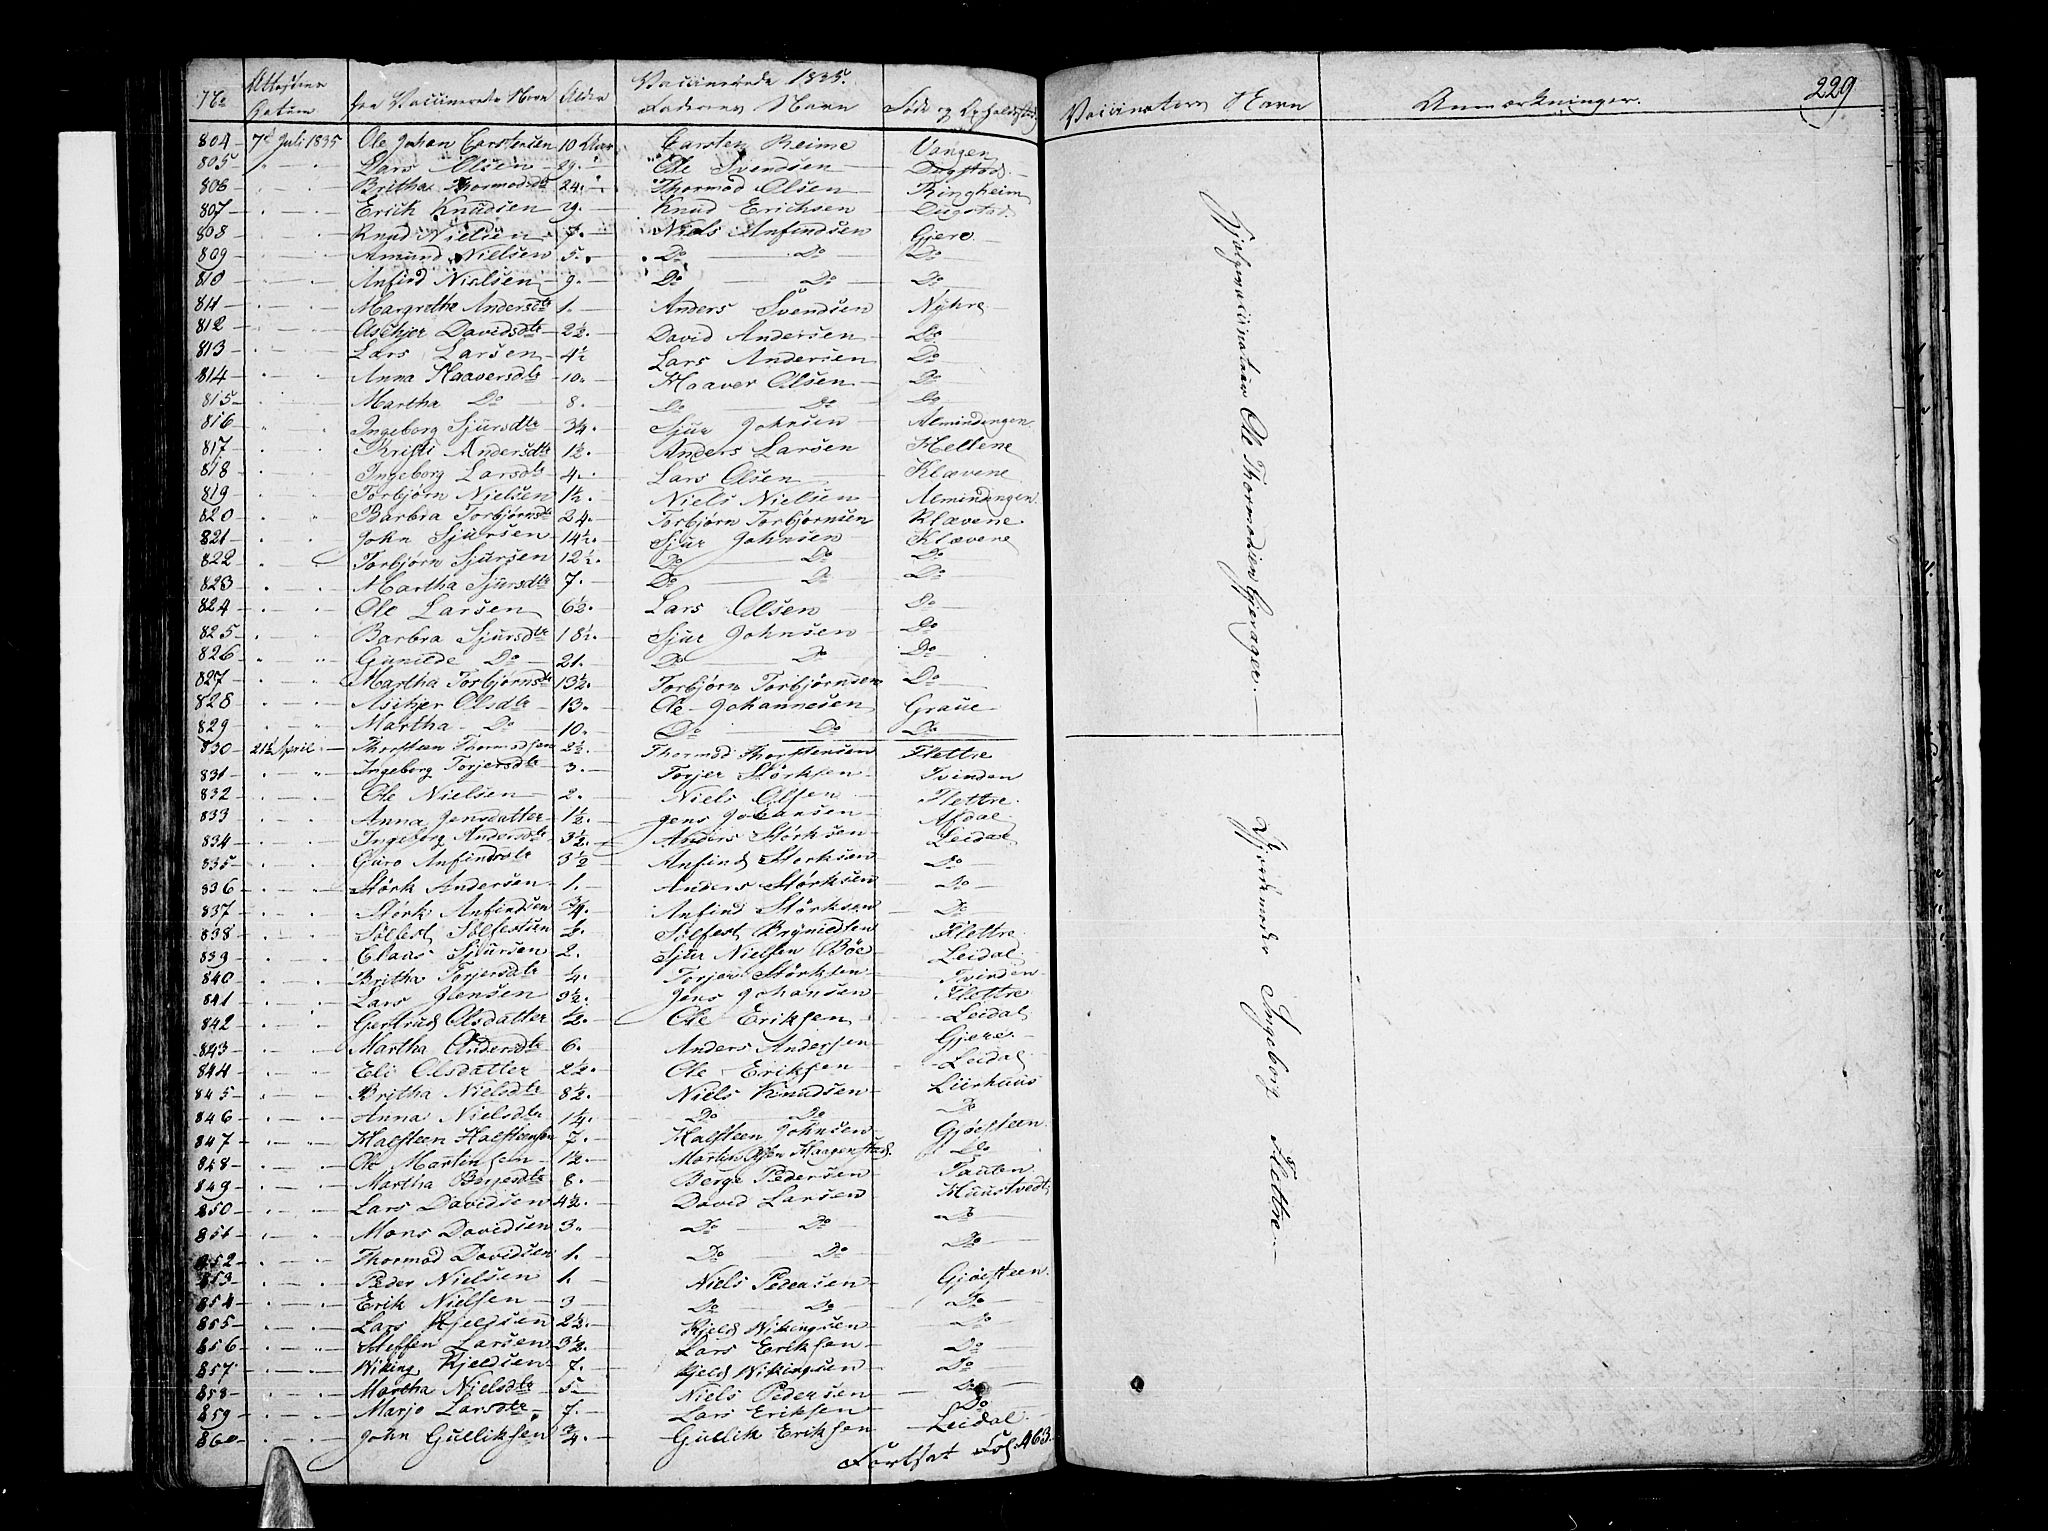 Vaccinerede 1835.
No Attestens Datum | den Vaccineredes Navn | Alder | Faderens Navn | Føde og Opholdssted | Vaccinateurs Navn | Anmærkninger. | 229
804 7d Juli 1835 Ole Johan Carstensen 10 Aar Carsten Reime Vangen
805 " " Lars Olsen 29. " Ole Svendsen Dugstad
806 " " Britha Thormodsdtr 24. " Thormod Olsen Ringheim
807 " " Erich Knudsen Knud Erichsen Dugstad
808 " " Knud Nielsen 7. Niels Anfindsen Gjere
809 " " Amund Nielsen 5. Do Do Do
810 " " Anfind Nielsen 9. Do Do Do
811 " " Margretha Andersdtr 1. Anders Svendsen Nyhre
812 " " Aschjer Davidsdtr 2½. David Andersen Do
813 " " Lars Larsen 4½ Lars Andersen Do
814 " " Anna Haaversdtr 10. Haaver Olsen Do
815 " " Martha Do 8. Do Do Do
816 " " Ingeborg Sjursdtr 3/4. Sjur Johnsen Almindingen
817 " " Kristi Andersdtr 1½. Anders Larsen Hellene
818 " " Ingeborg Larsdtr 4. Lars Olsen Klævene
819 " " Torbjørn Nielsen 1½. Niels Nielsen Almindingen
820 " " Barbra Torbjørnsdtr 24. Torbjørn Torbjørnsen Klævene
821 " " John Sjursen 14½. Sjur Johnsen Klævene
822 " " Torbjørn Sjursen 12½. Do Do Do
823 " " Martha Sjursdtr 7. Do Do Do
824 " " Ole Larsen 6½. Lars Olsen Do
825 " " Barbra Sjursdtr 18½. Sjur Johnsen Do
826 " " Gunilde Do 21. Do Do Do
827 " " Martha Torbjørnsdtr 13½. Torbjørn Torbjørnsen Do
828 " " Aschjer Olsdtr 13. Ole Johannesen Graue
829 " " Martha Do 10. Do Do Do
830 21d April Thorsteen Thormodsen 2½. Thormod Thorstensen Flettre
831 " " Ingeborg Torjersdtr 3. Torjer Størksen Tvinden
832 " " Ole Nielsen 2. Niels Olsen Flettre
833 " " Anna Jensdatter 1½. Jens Johansen Afdal
834 " " Ingeborg Andersdtr 3½. Anders Størksen Leidal
835 " " Guro Anfindsdtr 3½ Anfind Størksen Do
836 " " Størk Andersen 1. Anders Størksen Do
837 " " Størk Anfindsen 3/4. Anfind Størksen Do
838 " " Sølfest Sølfestsen Sølfest Brynildsen Flettre
839 " " Claas Sjursen 2. Sjur Nielsen Böe Leidal
840 " " Britha Torjersdtr 1/4. Torjer Størksen Tvinden
841 " " Lars Jensen 3½. Jens Johansen Flettre
842 " " Gertrud Olsdatter ½. Ole Eriksen Leidal
843 " " Martha Andersdtr 6. Anders Andersen Gjere
844 " " Eli Olsdatter 2½. Ole Eriksen Leidal
845 " " Britha Nielsdtr 8½. Niels Knudsen Liirhuus
846 " " Anna Nielsdtr 1¼. Do Do Do
847 " " Halsteen Halsteensen 7. Halsteen Johnsen Gjøesteen
848 " " Ole Martinsen 1½. Martin Haagenstad Do
849 " " Martha Bergesdtr 8. Berge Pedersen Tauten
850 " " Lars Davidsen 4½. David Larsen Huustvedt
851 " " Mons Davidsen 3. Do Do Do
852 " " Thormod Davidsen 1. Do Do Do
853 " " Peder Nielsen 1. Niels Pedersen Gjøesteen
854 " " Erik Nielsen 3 Do Do Do
855 " " Lars Kjeldsen 2½. Kjeld Vikingsen Do
856 " " Steffen Larsen 3½. Lars Eriksen Do
857 " " Wiking Kjeldsen 7. Kjeld Vikingsen Do
858 " " Martha Nielsdtr 5. Niels Pedersen Do
859 " " Marjo Larsdtr 7. Lars Eriksen Do
860 " " John Gulliksen 3/4. Gullik Eriksen Leidal
Fortsat Fol. 463.
Hjelpevaccinateur Ole Thormodsen Gjerager.
Gjordemoder Ingeborg Flettre